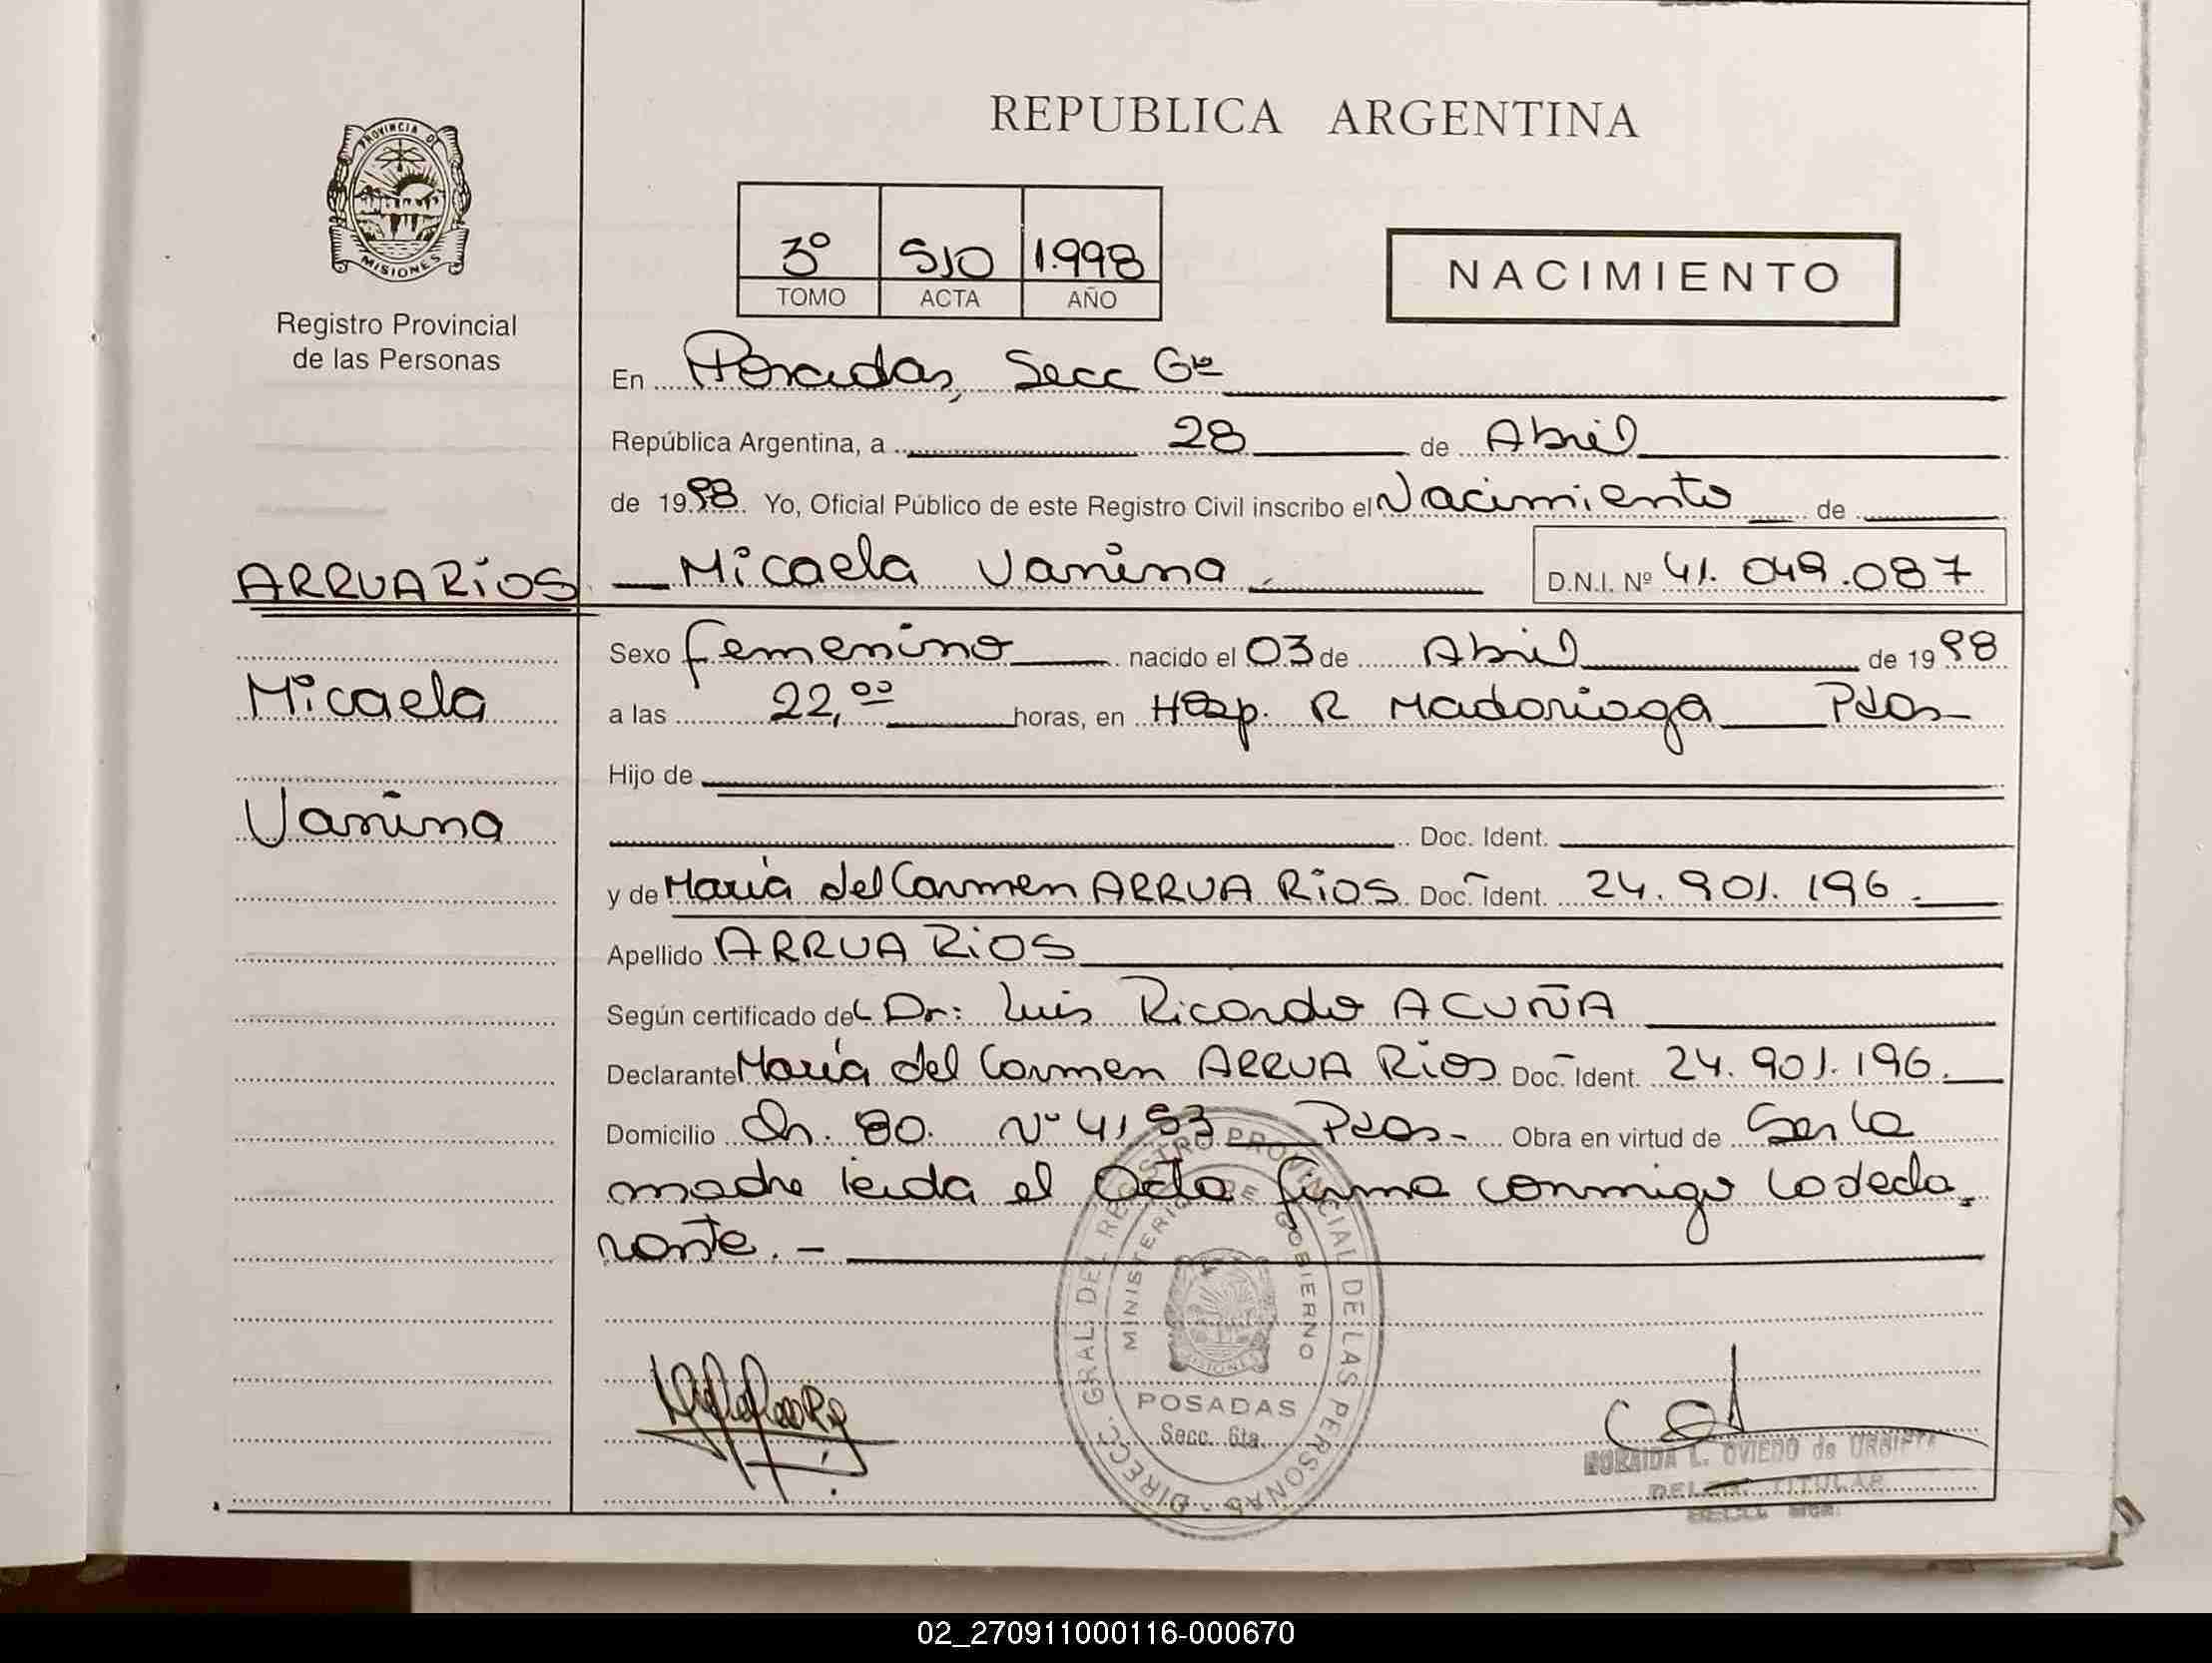 REPUBLICA ARGENTINA
PROVINCIA DE
MISIONES
Registro Provincial
de las Personas
3º 510 1.998
TOMO ACTA AÑO
NACIMIENTO
En Posadas, Secc 6ta
República Argentina, a 28 de Abril
de 1998. Yo, Oficial Público de este Registro Civil inscribo el Nacimiento de
ARRUA RiOS
Micaela Vanina D.N.I. Nº 41.049.087
Sexo femenino nacido el 03 de Abril de 1998
Micaela
a las 22,00 horas, en Hosp. R Madariaga Pdas
Hijo de
Vanina
Doc. Ident.
y de María del Carmen ARRUA RiOS Doc. Ident. 24.901.196.
Apellido ARRUA RiOS
Según certificado del Dr: Luis Ricardo ACUÑA
Declarante María del Carmen ARRUA RiOS Doc. Ident. 24.901.196.
Domicilio Ch. 80. Nº 4193 Pdas- Obra en virtud de Ser la
madre leida el Acta firma conmigo la decla
rante.-
DIRECC. GRAL. DEL REGISTRO PROVINCIAL DE LAS PERSONAS
MINISTERIO DE GOBIERNO
MISIONES
POSADAS
Secc. 6ta.
L. OVIEDO de
TITULAR
02_270911000116-000670